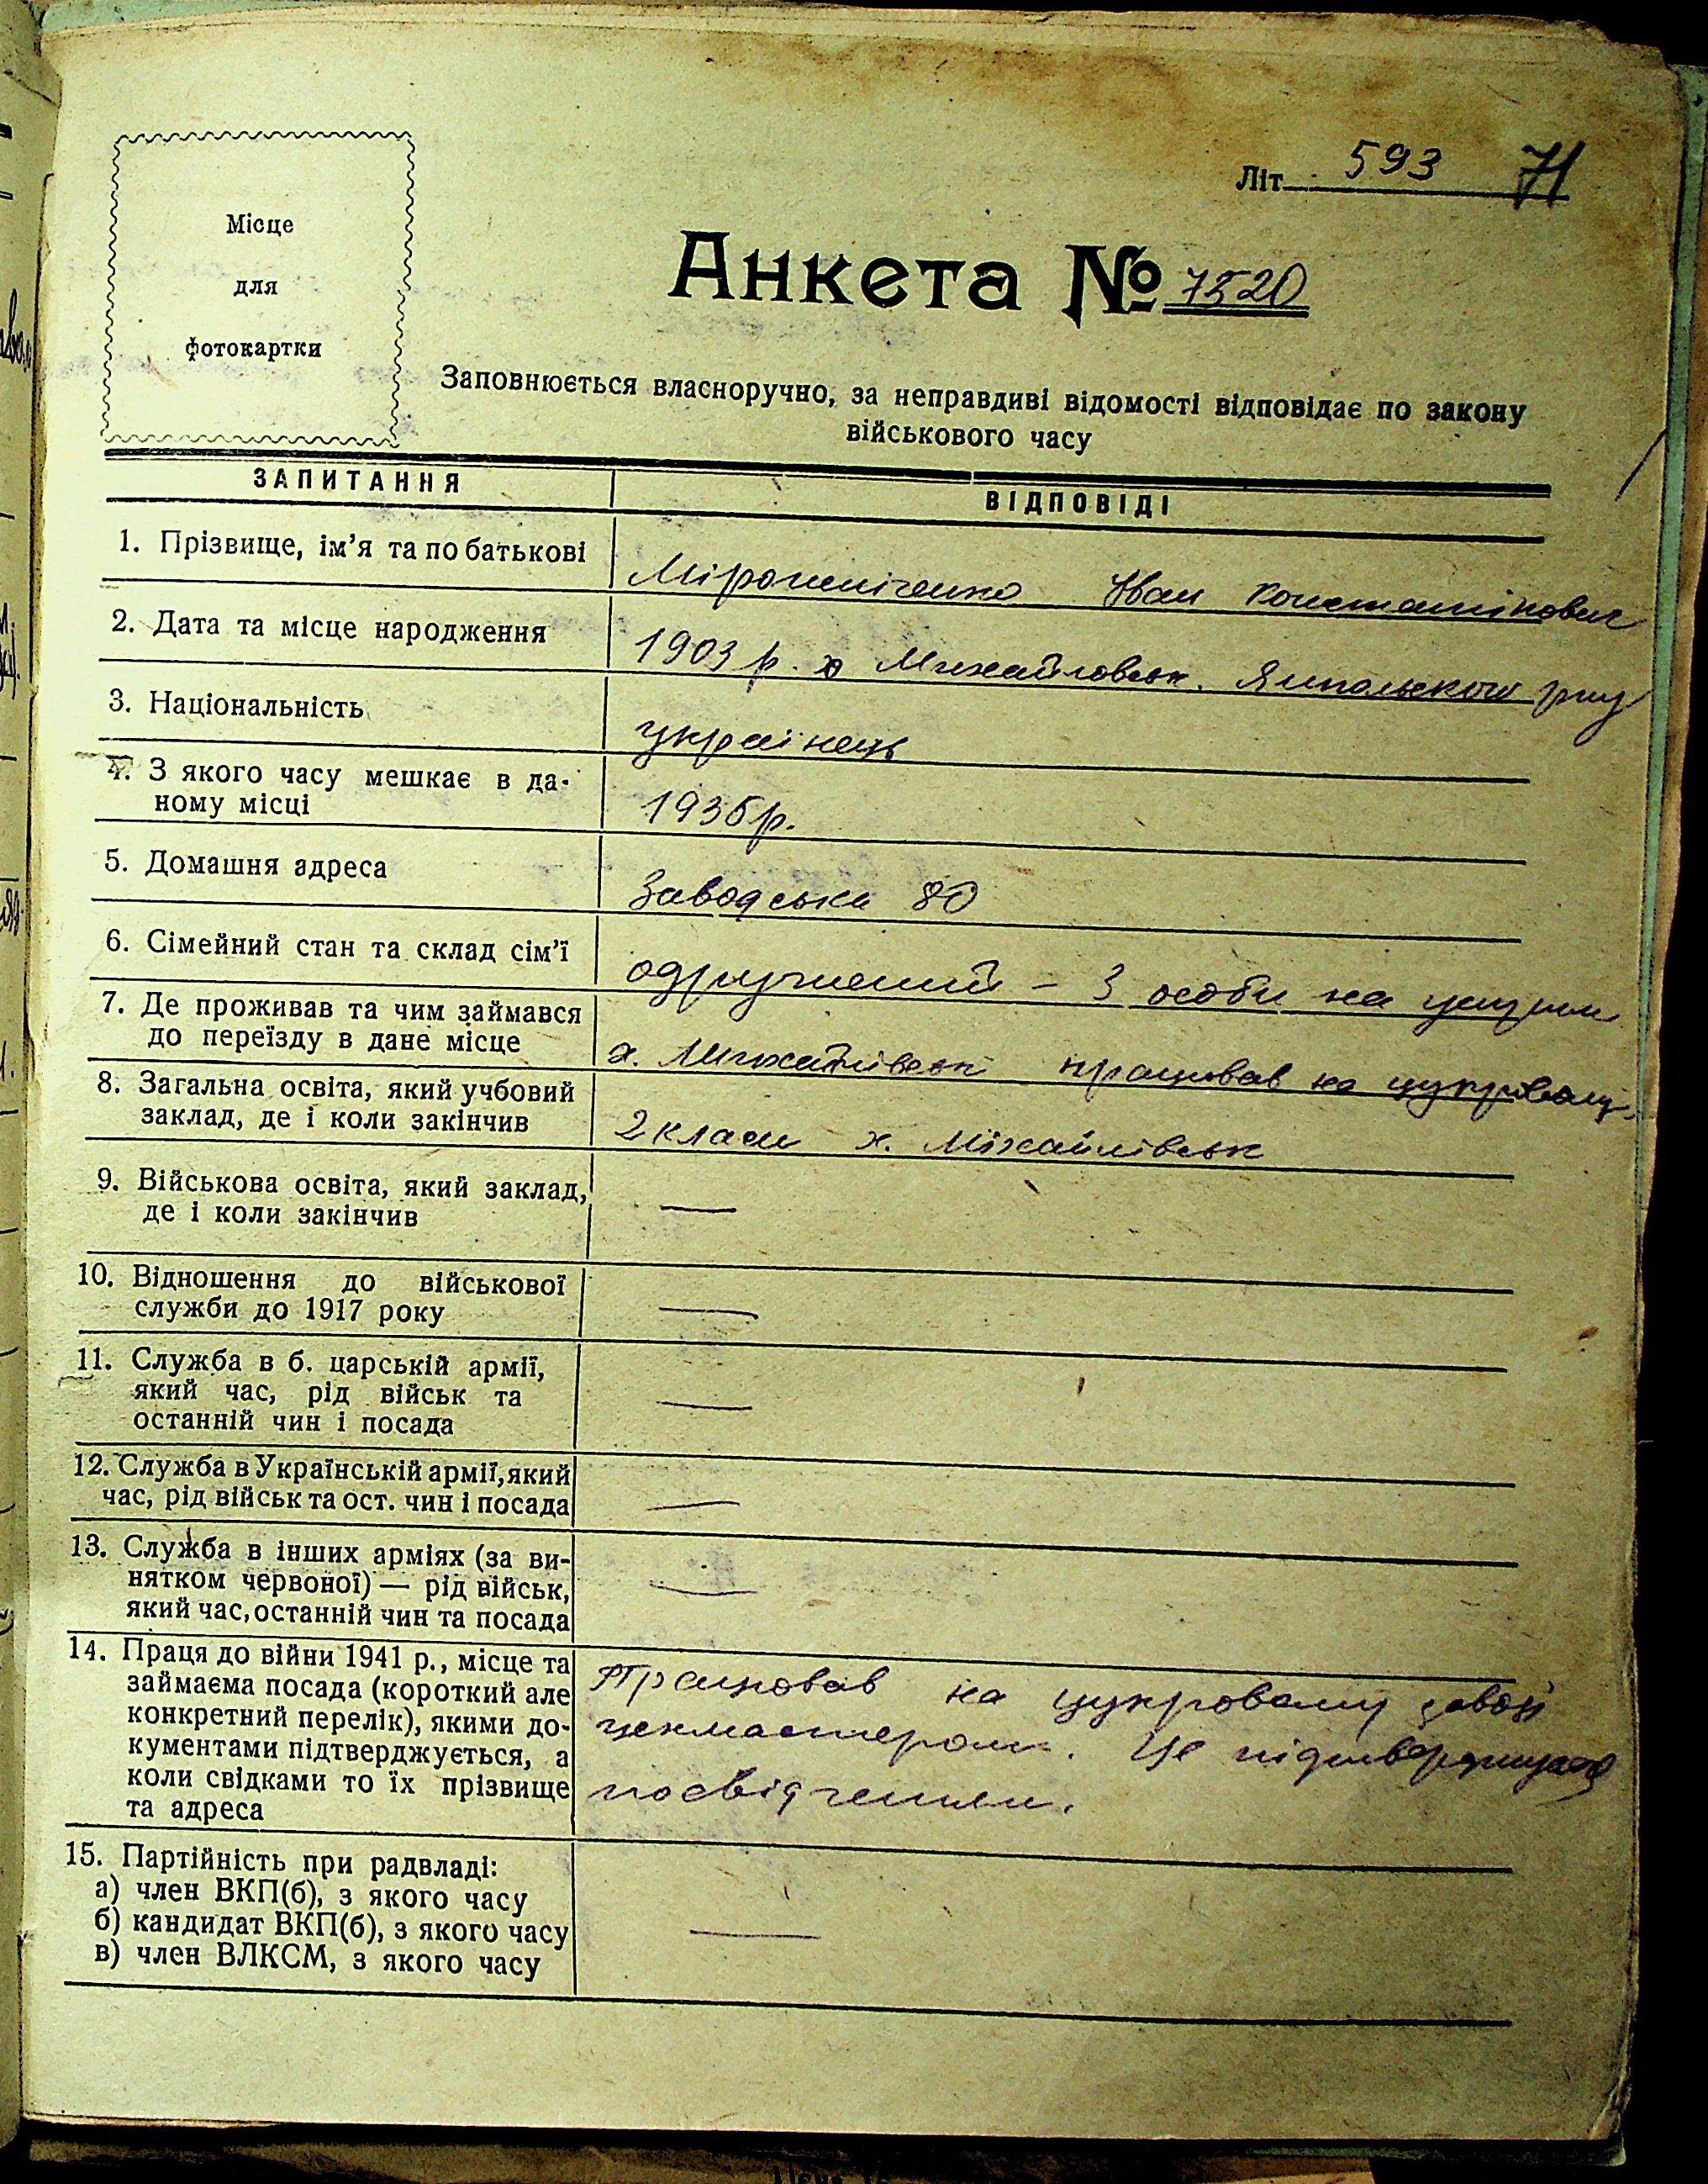 Літ. 593 71
Місце
для
фотокартки
Анкета № 7520
Заповнюється власноручно, за неправдиві відомості відповідає по закону
військового часу
ЗАПИТАННЯ ВІДПОВІДІ
1. Прізвище, ім’я та по батькові Мірошніченко Іван Константінович
2. Дата та місце народження 1903 р. х Михайловськ. Ямпольського р-ну
3. Національність українець
4. З якого часу мешкає в да-
ному місці 1936 р.
5. Домашня адреса Заводська 80
6. Сімейний стан та склад сім’ї одружений – 3 особи на
7. Де проживав та чим займався
до переїзду в дане місце х. Михайлівськ працював на цукровому
8. Загальна освіта, який учбовий
заклад, де і коли закінчив 2 класи х. Міхайлівськ
9. Військова освіта, який заклад,
де і коли закінчив —
10. Відношення до військової
служби до 1917 року —
11. Служба в б. царській армії,
який час, рід військ та
останній чин і посада —
12. Служба в Українській армії, який
час, рід військ та ост. чин і посада —
13. Служба в інших арміях (за ви-
нятком червоної) — рід військ,
який час, останній чин та посада —
14. Праця до війни 1941 р., місце та
займаєма посада (короткий але
конкретний перелік), якими до-
кументами підтверджується, а
коли свідками то їх прізвище
та адреса
Працював на цукровому заводі
цехмастером. Це підтверджує
посвідчення.
15. Партійність при радвладі:
а) член ВКП(б), з якого часу
б) кандидат ВКП(б), з якого часу —
в) член ВЛКСМ, з якого часу